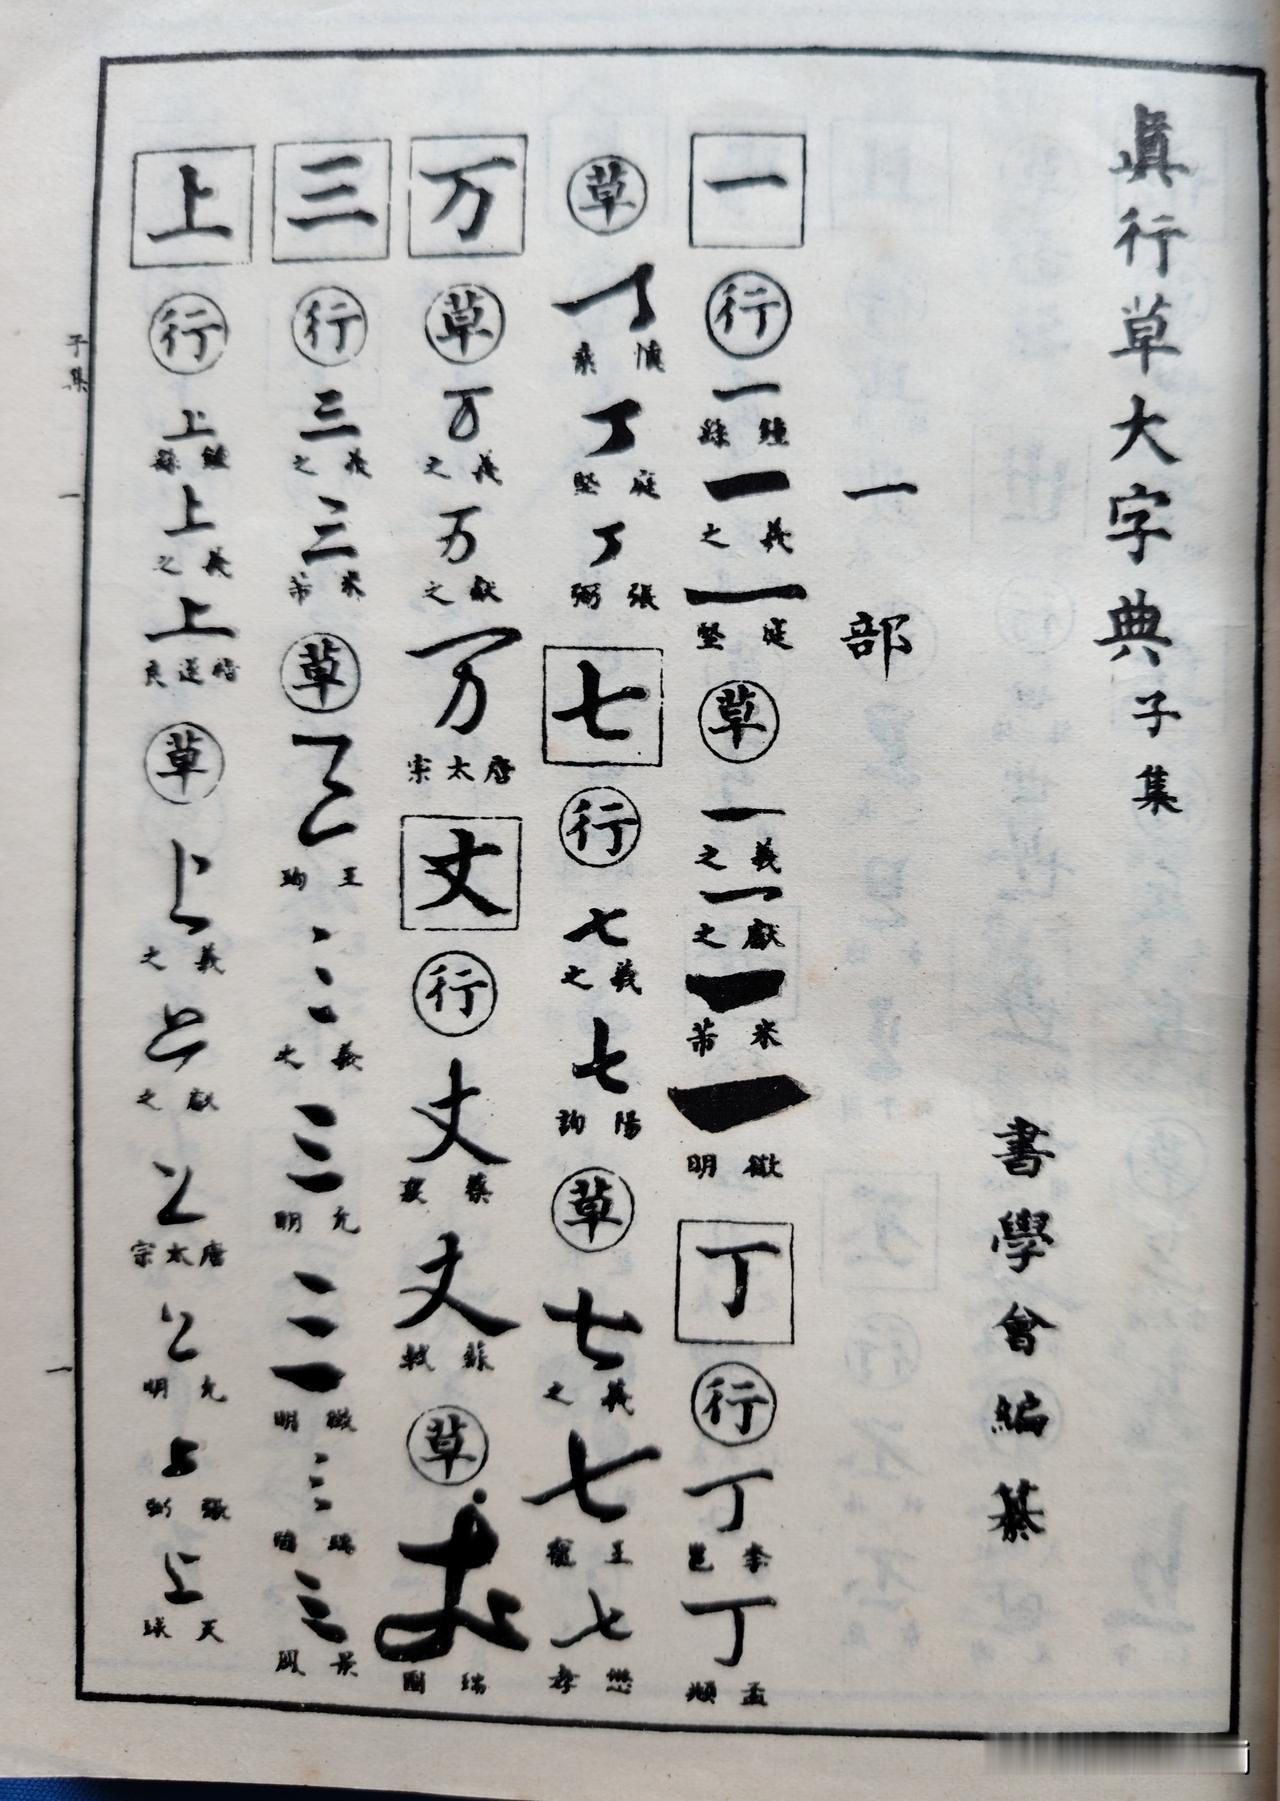 眞行草大字典子集
書學會編纂
一部
一 行 一 鍾繇 一 羲之 一 庭堅 草 一 羲之 一 獻之 一 米芾 一 徵明 丁 行 丁 李邕 丁 孟頫
草 丁 懷素 丁 庭堅 丁 張弼 七 行 七 羲之 七 陽詢 草 七 羲之 七 王寵 七
万 草 万 羲之 万 獻之 万 唐太宗 丈 行 丈 蔡襄 丈 蘇軾 草 丈 瑞圖
三 行 三 羲之 三 米芾 草 三 王珣 三 羲之 三 允明 三 徵明 三 瑞圖 三 景鳳
上 行 上 鍾繇 上 羲之 上 褚遂良 草 上 羲之 上 獻之 上 唐太宗 上 允明 上 張弼 上 天球
子集 一
一